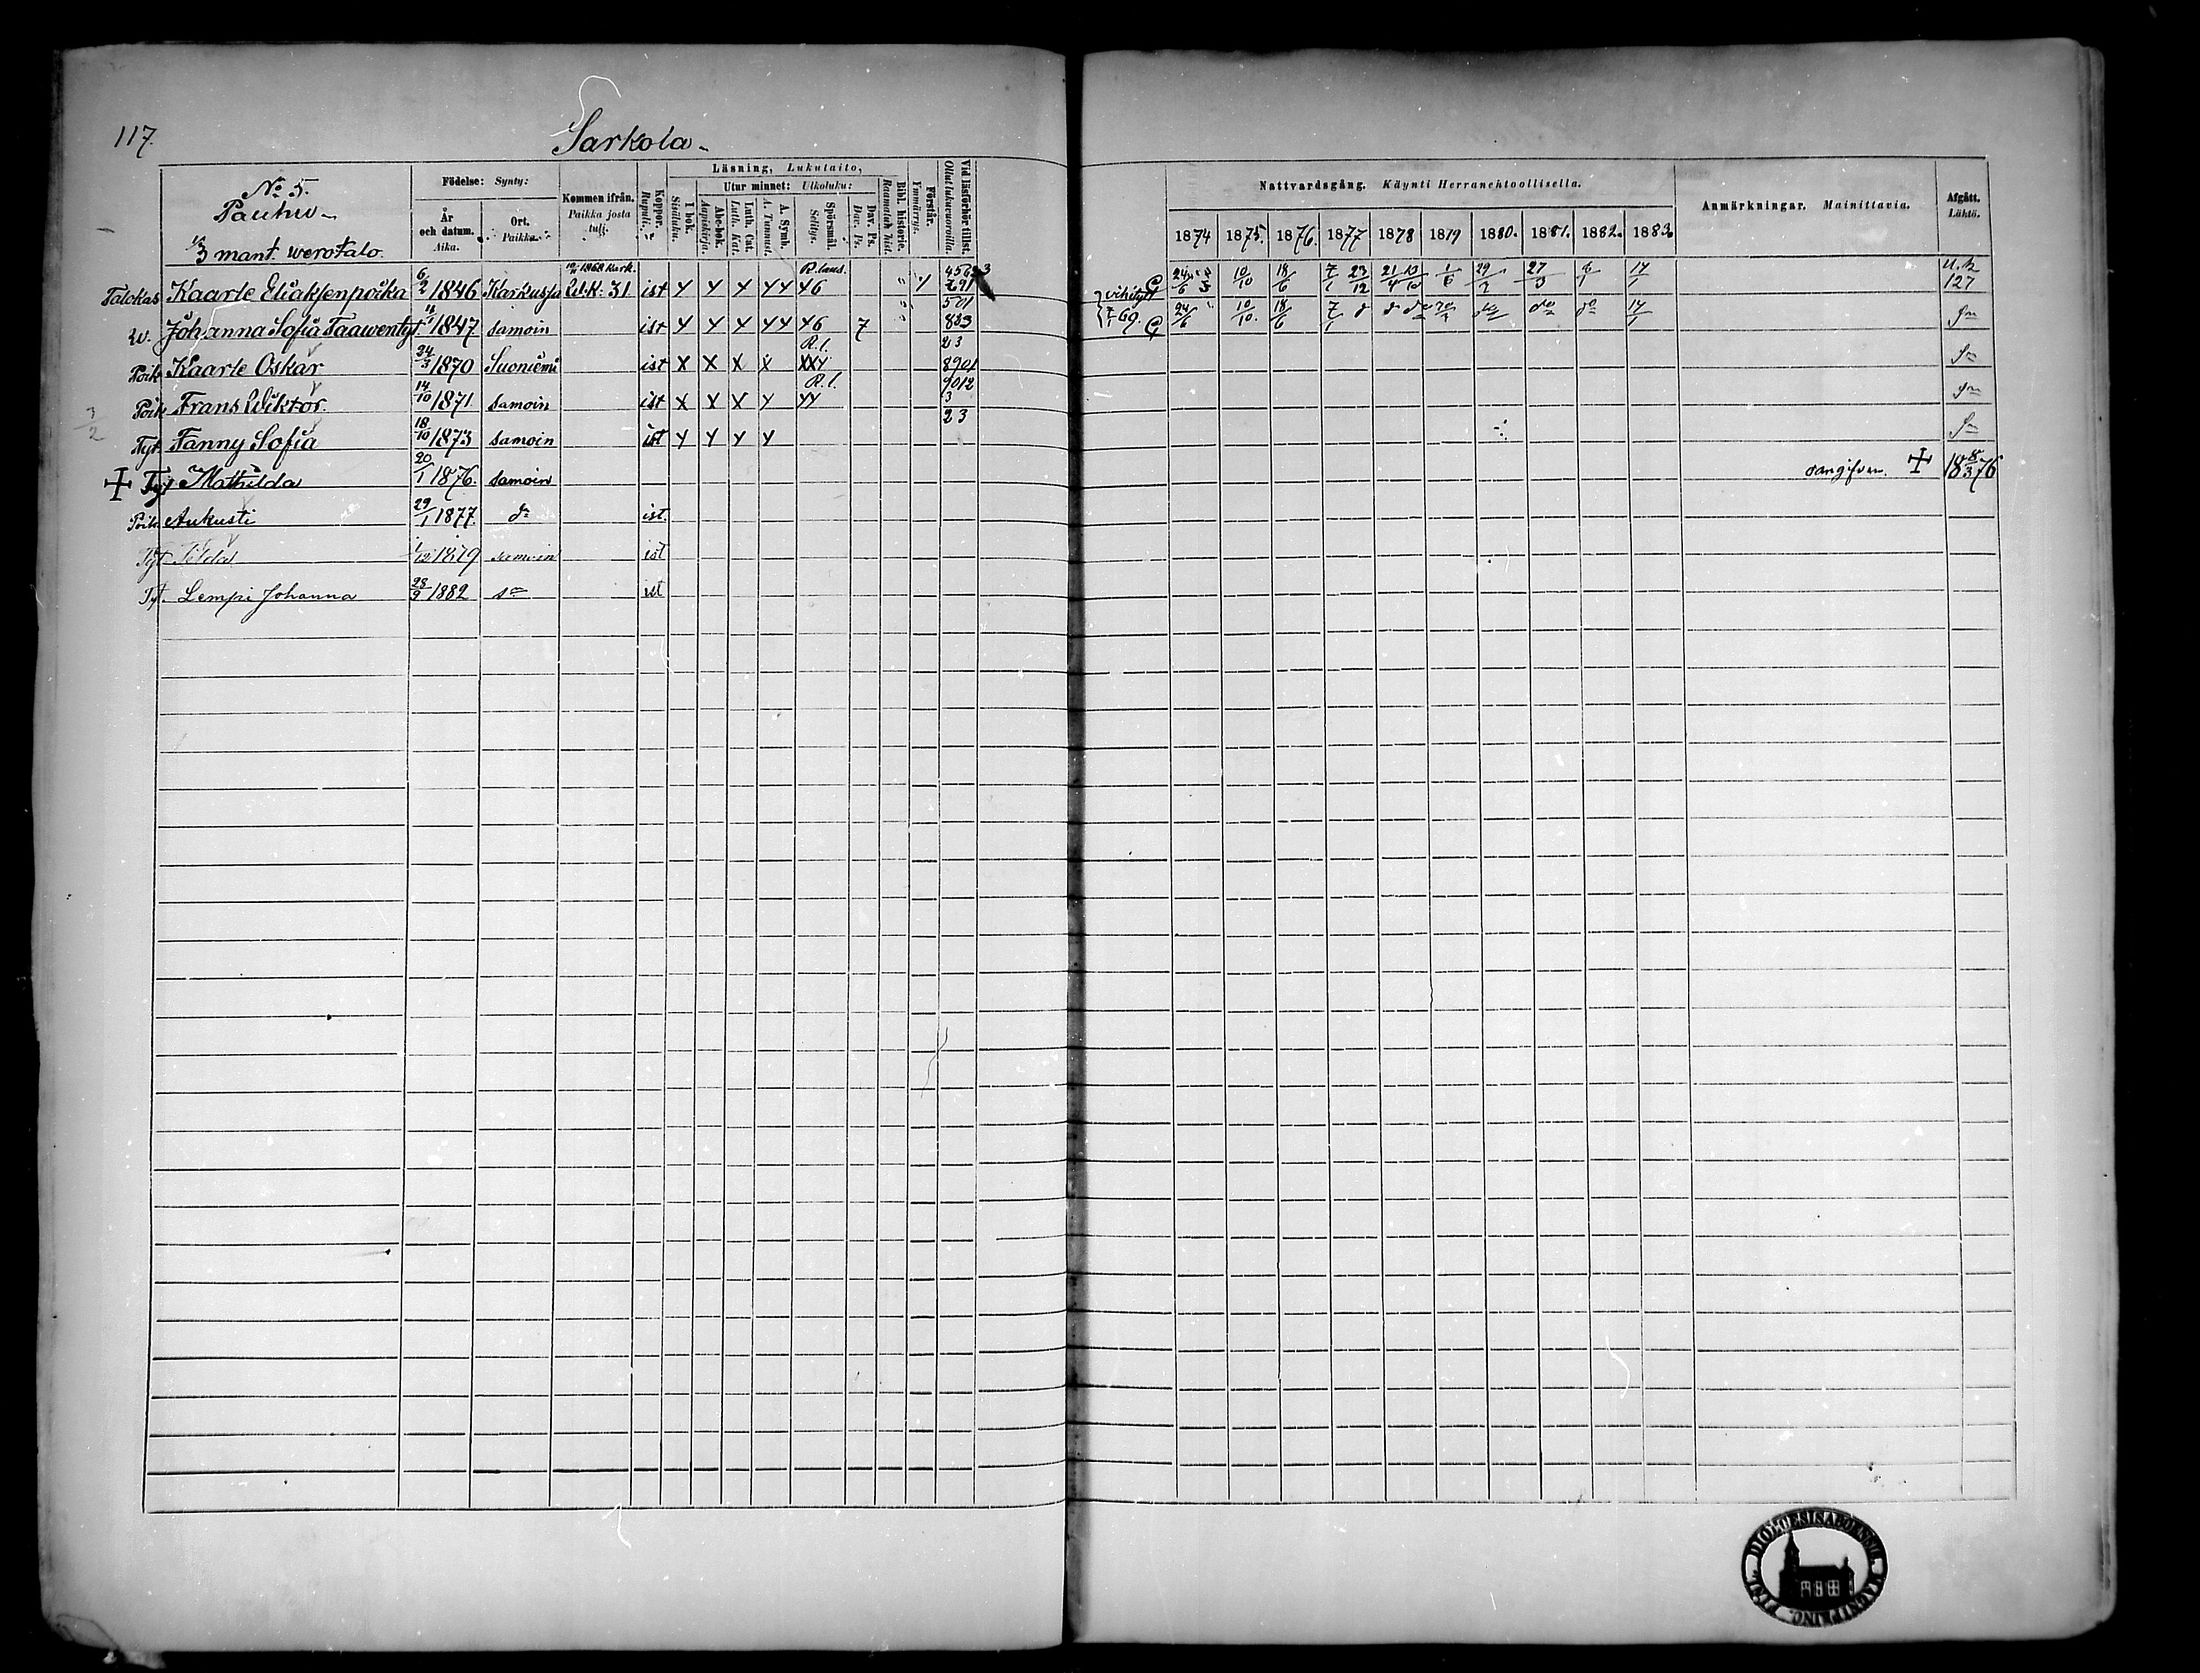 117.
Sarkola
No 5.
Pauhu
1/3 mant. werotalo.
Födelse: Synty:
År och datum. Aika.
Ort. Paikka.
Kommen ifrån. Paikka josta tull.
Koppor. Rupuli.
Läsning, Lukutaito,
I bok. Sisäluku.
Utur minnet: Ulkoluku:
Abc-bok. Aapiskirja.
Luth. Cat. Luth. Kat.
A. Symb. A. Tunnust.
Spörsmål. Selitys.
Dav. Ps. Dav. Ps.
Bibl. historie. Raamatun hist.
Förstår. Ymmärrys.
Vid läsförhör tillst. Ollut lukuvuoroilla.
Nattvardsgång. Käynti Herranehtoollisella.
1874 1875. 1876. 1877 1878 1879 1880. 1881. 1882. 1883.
Anmärkningar. Mainittavia.
Afgått. Lähtö.
Kaarle Eliaksenpoika 6/2 1846 Karkussa 31 ist Y Y Y YY Y6 24/6 10/10 18/6 7/1 23/12 1/6 29/2 27/3 17/1 127
W. Johanna Sofia Taawentyt 1847 samoin ist Y Y Y YY Y6 7 883 vihityt 7/1 69. 24/6 10/10. 18/6 7/1 17/1
Poik Kaarle Oskar 24/3 1870 Suoniemi ist X X X 23 8901
Poik Frans Wiktor. 14/10 1871 samoin ist X X X Y YY 9012 3
Tyt. Fanny Sofia 18/10 1873 samoin ist Y Y Y Y 23
Tyt Mathilda 20/1 1876. samoin 18 8/3 76
Poik. Aukusti 29/1 1877. ist.
Tyt 1/12 1879 samoin ist
Tyt. Lempi Johanna 28/9 1882 ist